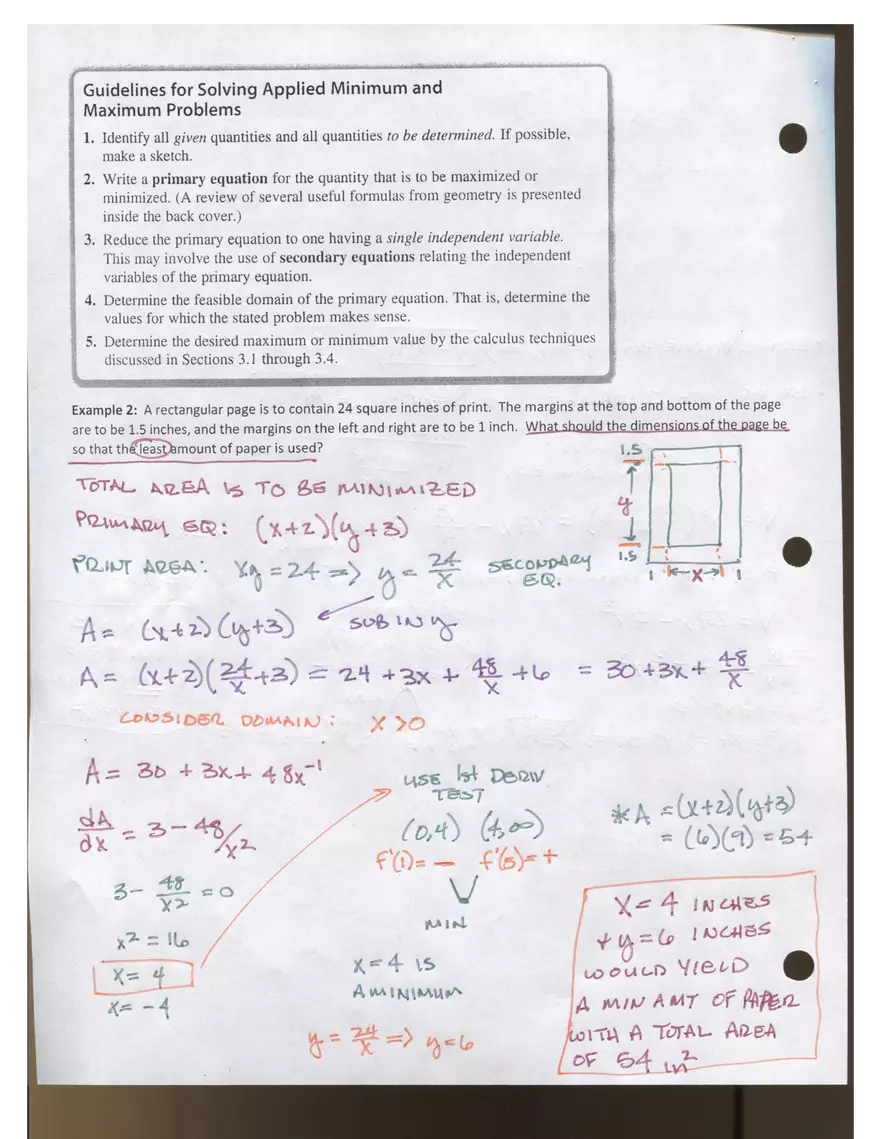 Guidelines for Solving Applied Minimum and
Maximum Problems
1. Identify all given quantities and all quantities to be determined. If possible,
make a sketch.
2. Write a primary equation for the quantity that is to be maximized or
minimized. (A review of several useful formulas from geometry is presented
inside the back cover.)
3. Reduce the primary equation to one having a single independent variable.
This may involve the use of secondary equations relating the independent
variables of the primary equation.
4. Determine the feasible domain of the primary equation. That is, determine the
values for which the stated problem makes sense.
5. Determine the desired maximum or minimum value by the calculus techniques
discussed in Sections 3.1 through 3.4.
Example 2: A rectangular page is to contain 24 square inches of print. The margins at the top and bottom of the page
are to be 1.5 inches, and the margins on the left and right are to be 1 inch. What should the dimensions of the page be
so that the least amount of paper is used?
1.5
y
1.5
1 x 1
TOTAL AREA IS TO BE MINIMIZED
PRIMARY EQ: (x+2)(y+3)
PRINT AREA: xy = 24 => y = 24/x SECONDARY
EQ.
A = (x+2)(y+3) SUB IN y
A = (x+2)(24/x+3) = 24 + 3x + 48/x + 6 = 30 + 3x + 48/x
CONSIDER DOMAIN: x > 0
A = 30 + 3x + 48x⁻¹
dA/dx = 3 - 48/x²
3 - 48/x² = 0
x² = 16
x = 4
x = -4
USE 1st DERIV
TEST
(0,4) (4,∞)
f'(1) = - f'(5) = +
MIN
x = 4 IS
A MINIMUM
y = 24/x => y = 6
*A = (x+2)(y+3)
= (6)(9) = 54
x = 4 INCHES
+ y = 6 INCHES
WOULD YIELD
A MIN AMT OF PAPER
WITH A TOTAL AREA
OF 54 in²